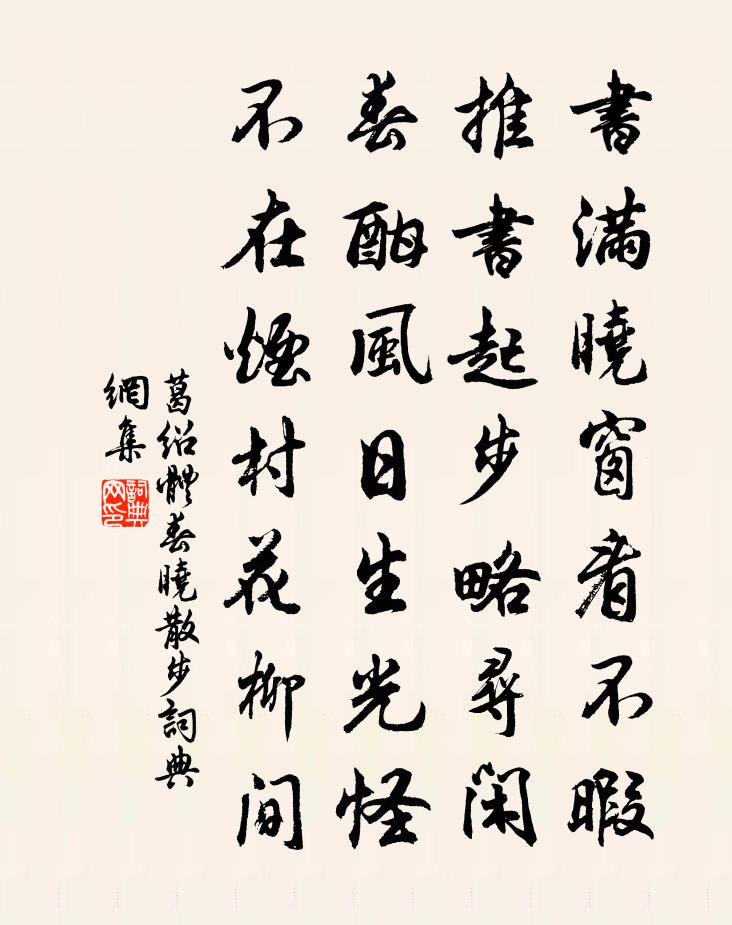 書滿曉窗看不暇
推書起步略尋閑
春酣風日生光怪
不在煙村花柳間
葛紹體春曉散步詞典
網集
詞典
网印